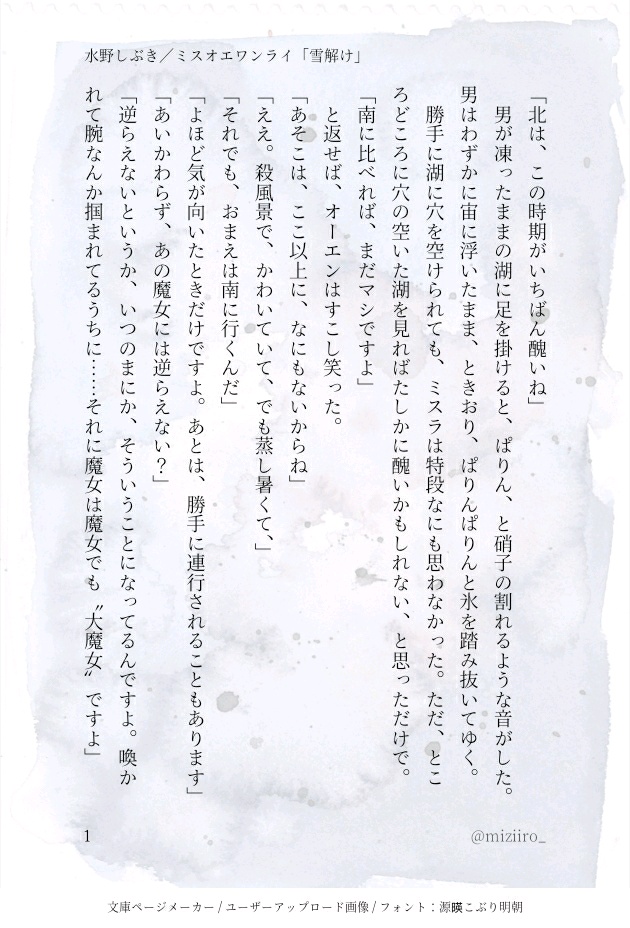 水野しぶき／ミスオエワンライ「雪解け」
「北は、この時期がいちばん醜いね」
　男が凍ったままの湖に足を掛けると、ぱりん、と硝子の割れるような音がした。
男はわずかに宙に浮いたまま、ときおり、ぱりんぱりんと氷を踏み抜いてゆく。
　勝手に湖に穴を空けられても、ミスラは特段なにも思わなかった。ただ、とこ
ろどころに穴の空いた湖を見ればたしかに醜いかもしれない、と思っただけで。
「南に比べれば、まだマシですよ」
　と返せば、オーエンはすこし笑った。
「あそこは、ここ以上に、なにもないからね」
「ええ。殺風景で、かわいていて、でも蒸し暑くて、」
「それでも、おまえは南に行くんだ」
「よほど気が向いたときだけですよ。あとは、勝手に連行されることもあります」
「あいかわらず、あの魔女には逆らえない？」
「逆らえないというか、いつのまにか、そういうことになってるんですよ。喚か
れて腕なんか掴まれてるうちに……それに魔女は魔女でも〝大魔女〟ですよ」
1
@miziiro_
文庫ページメーカー / ユーザーアップロード画像 / フォント：源暎こぶり明朝